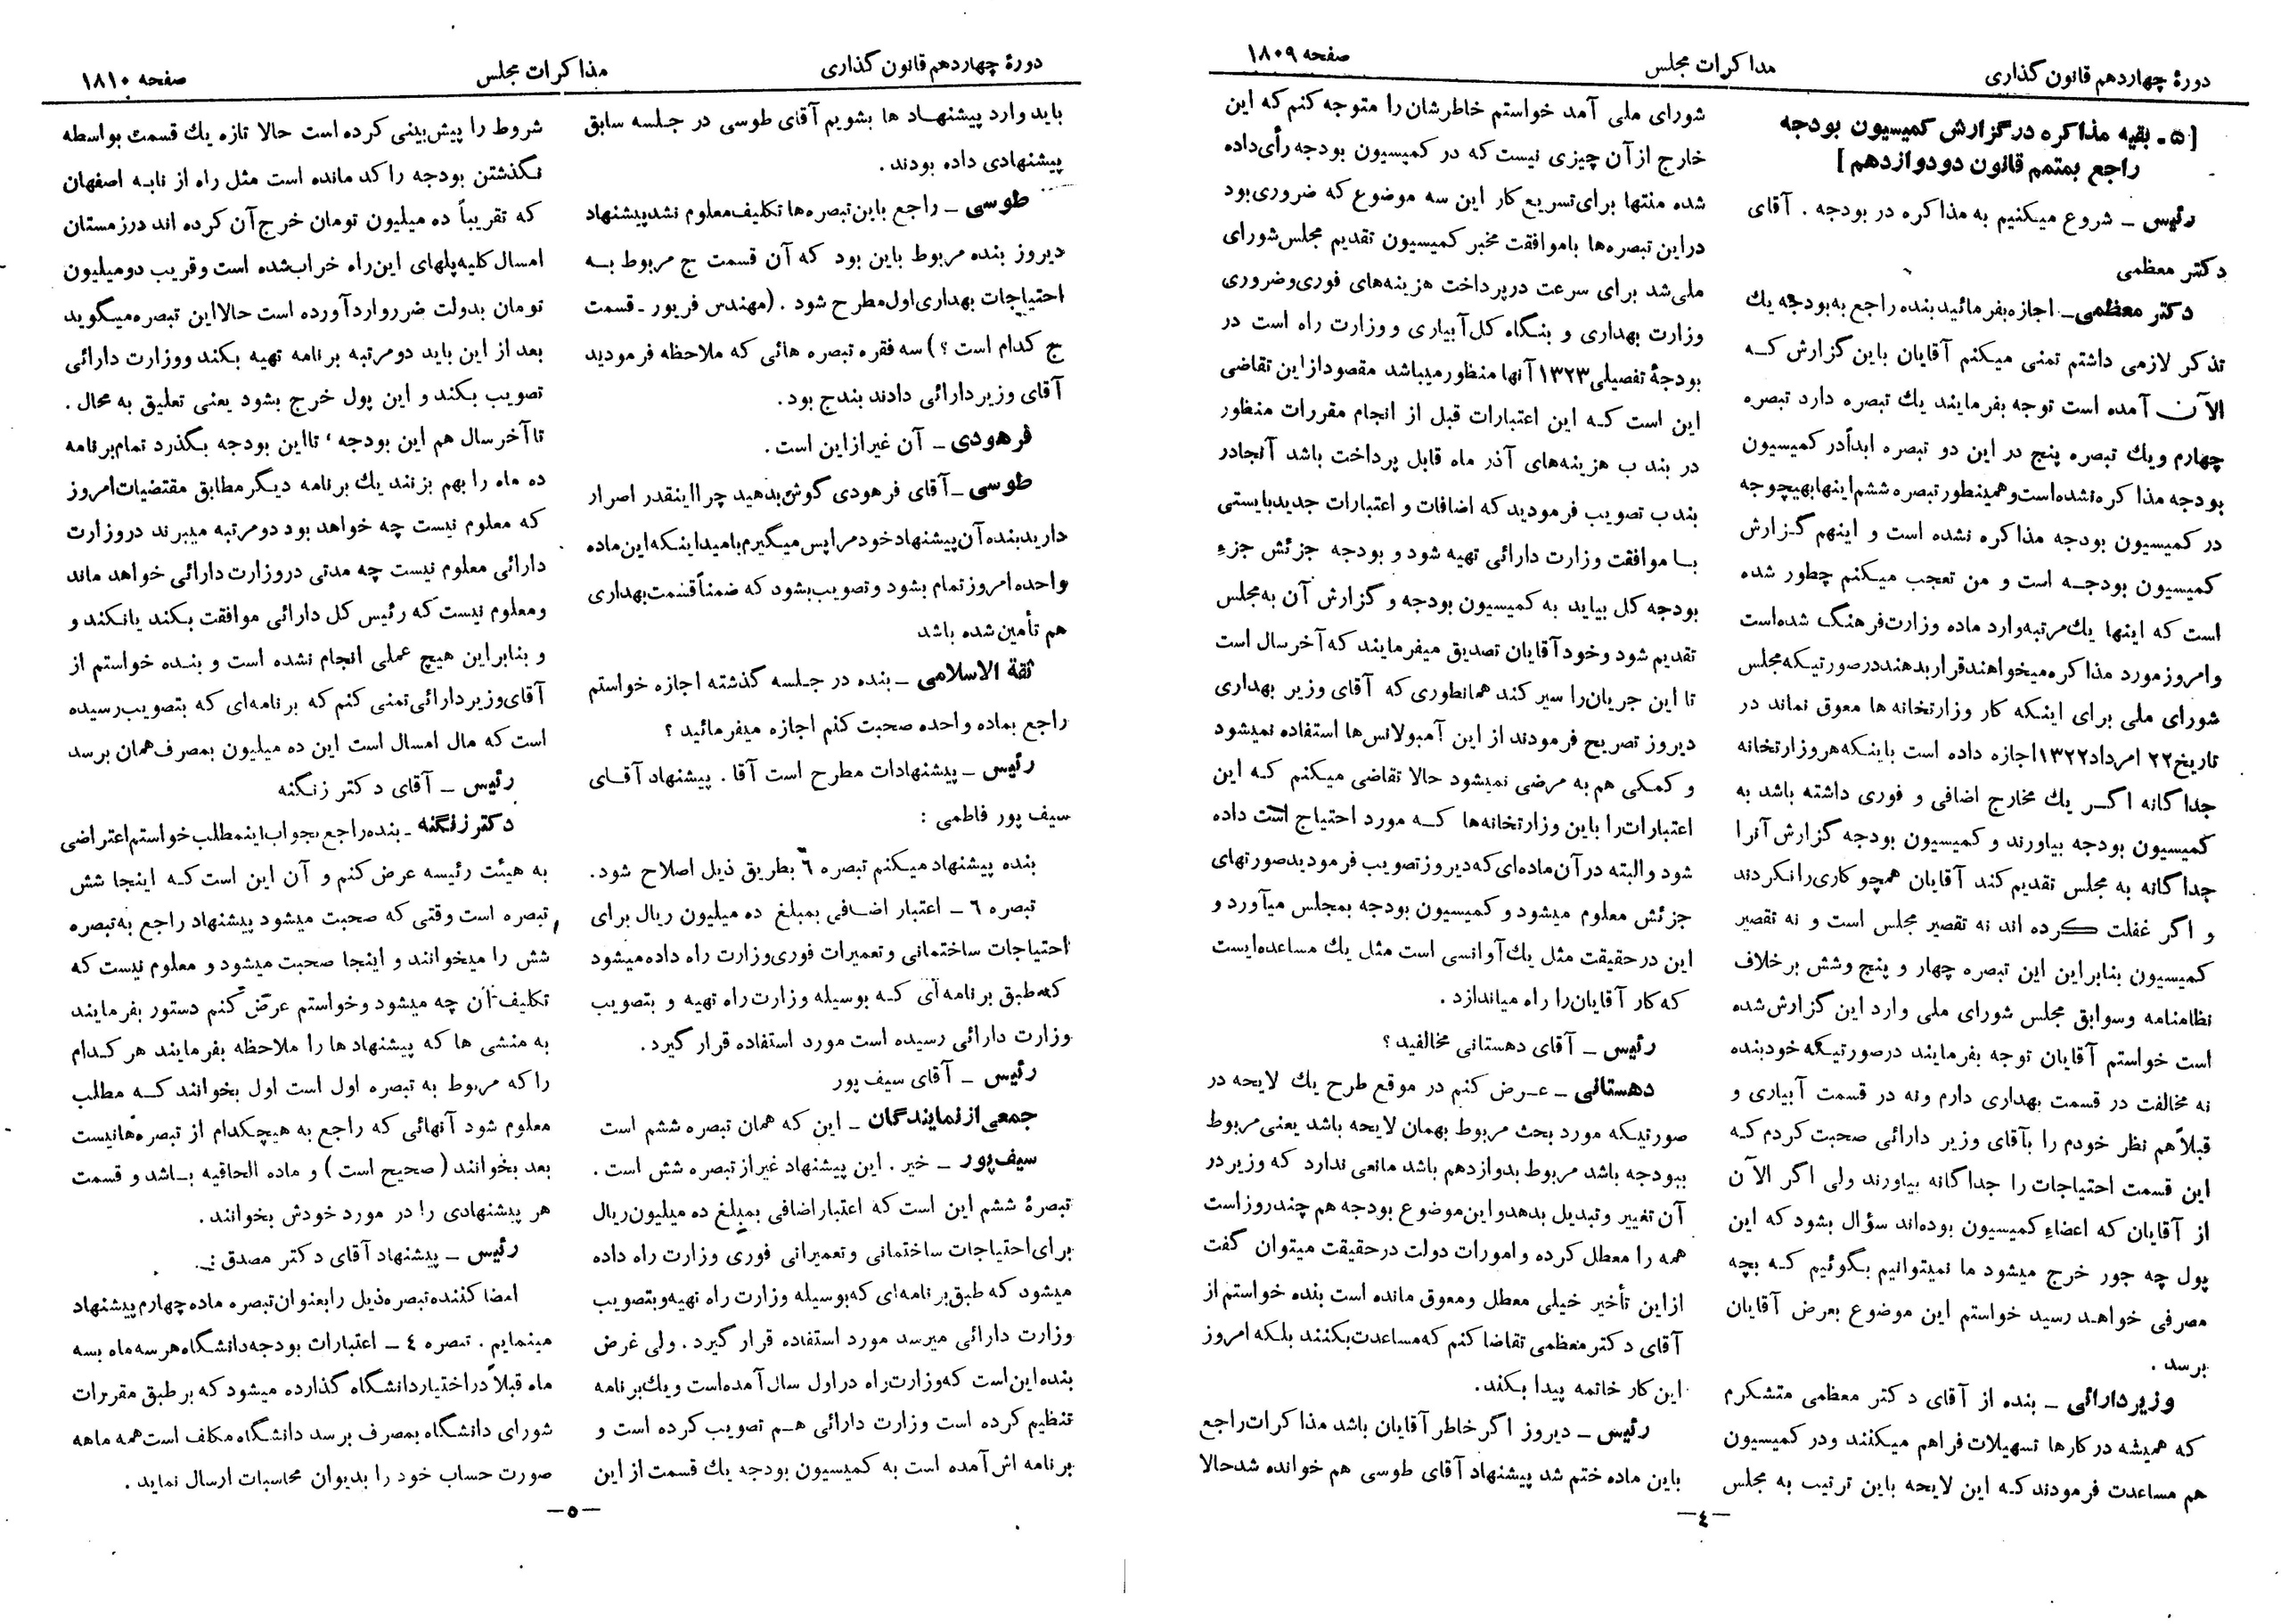 دورهٔ چهاردهم قانون گذاری
مذاکرات مجلس
صفحه ۱۸۰۹
[۵ـ بقیه مذاکره در گزارش کمیسیون بودجه
راجع بمتمم قانون دودوازدهم]
رئیس ـ شروع میکنیم به مذاکره در بودجه . آقای
دکتر معظمی
دکتر معظمی ـ اجازه بفرمائید بنده راجع به بودجه یك
تذکر لازمی داشتم تمنی میکنم آقایان باین گزارش کـه
الآن آمده است توجه بفرمایند یك تبصره دارد تبصره
چهارم ویك تبصره پنج در این دو تبصره ابداً در کمیسیون
بودجه مذاکره نشده است و همینطور تبصره ششم اینها بهیچوجه
در کمیسیون بودجه مذاکره نشده است و اینهم گزارش
کمیسیون بودجـه است و من تعجب میکنم چطور شده
است که اینها یك مرتبه وارد ماده وزارت فرهنگ شده است
و امروز مورد مذاکره میخواهند قرار بدهند در صورتیکه مجلس
شورای ملی برای اینکه کار وزارتخانه ها معوق نماند در
تاریخ ۲۲ امرداد ۱۳۲۲ اجازه داده است باینکه هر وزارتخانه
جداگانه اگـر یك مخارج اضافی و فوری داشته باشد به
کمیسیون بودجه بیاورند و کمیسیون بودجه گزارش آنرا
جداگانه به مجلس تقدیم کند آقایان همچو کاری را نکردند
و اگر غفلت کرده اند نه تقصیر مجلس است و نه تقصیر
کمیسیون بنابراین این تبصره چهار و پنج وشش بر خلاف
نظامنامه وسوابق مجلس شورای ملی وارد این گزارش شده
است خواستم آقایان توجه بفرمایند در صورتیکه خود بنده
نه مخالفت در قسمت بهداری دارم ونه در قسمت آبیاری و
قبلاً هم نظر خودم را بآقای وزیر دارائی صحبت کردم کـه
این قسمت احتیاجات را جداگانه بیاورند ولی اگر الآن
از آقایان که اعضاء کمیسیون بوده‌اند سؤال بشود که این
پول چه جور خرج میشود ما نمیتوانیم بگوئیم کـه بچه
مصرفی خواهـد رسید خواستم این موضوع بعرض آقایان
برسد .
وزیر دارائی ـ بنده از آقای دکتر معظمی متشکرم
که همیشه در کارها تسهیلات فراهم میکنند ودر کمیسیون
هم مساعدت فرمودند کـه این لایحه باین ترتیب به مجلس
شورای ملی آمد خواستم خاطرشان را متوجه کنم که این
خارج از آن چیزی نیست که در کمیسیون بودجه رأی داده
شده منتها برای تسریع کار این سه موضوع که ضروری بود
در این تبصره‌ها با موافقت مخبر کمیسیون تقدیم مجلس شورای
ملی شد برای سرعت در پرداخت هزینه‌های فوری و ضروری
وزارت بهداری و بنگاه کل آبیاری و وزارت راه است در
بودجهٔ تفصیلی ۱۳۲۳ آنها منظور میباشد مقصود از این تقاضی
این است کـه این اعتبارات قبل از انجام مقررات منظور
در بند ب هزینه‌های آذر ماه قابل پرداخت باشد آنجا در
بند ب تصویب فرمودید که اضافات و اعتبارات جدید بایستی
بـا موافقت وزارت دارائی تهیه شود و بودجه جزئش جزء
بودجه کل بیاید به کمیسیون بودجه و گزارش آن به مجلس
تقدیم شود و خود آقایان تصدیق میفرمایند که آخر سال است
تا این جریان را سیر کند همانطوری که آقای وزیر بهداری
دیروز تصریح فرمودند از این آمبولانس‌ها استفاده نمیشود
و کمکی هم به مرضی نمیشود حالا تقاضی میکنم کـه این
اعتبارات را باین وزارتخانه‌ها کـه مورد احتیاج است داده
شود و البته در آن ماده‌ای که دیروز تصویب فرمودید صورتهای
جزئش معلوم میشود و کمیسیون بودجه بمجلس میآورد و
این در حقیقت مثل یك آوانسی است مثل یك مساعده‌ایست
که کار آقایان را راه میاندازد .
رئیس ـ آقای دهستانی مخالفید ؟
دهستانی ـ عـرض کنم در موقع طرح یك لایحه در
صورتیکه مورد بحث مربوط بهمان لایحه باشد یعنی مربوط
ببودجه باشد مربوط بدوازدهم باشد مانعی ندارد که وزیر در
آن تغییر و تبدیل بدهد و این موضوع بودجه هم چند روز است
همه را معطل کرده و امورات دولت در حقیقت میتوان گفت
از این تأخیر خیلی معطل ومعوق مانده است بنده خواستم از
آقای دکتر معظمی تقاضا کنم که مساعدت بکنند بلکه امروز
این کار خاتمه پیدا بکند.
رئیس ـ دیروز اگر خاطر آقایان باشد مذاکرات راجع
باین ماده ختم شد پیشنهاد آقای طوسی هم خوانده شد حالا
ـ٤ـ
دورهٔ چهاردهم قانون گذاری
مذاکرات مجلس
صفحه ۱۸۱۰
باید وارد پیشنهـاد ها بشویم آقای طوسی در جـلسه سابق
پیشنهادی داده بودند .
طوسی ـ راجع باین تبصره‌ها تکلیف معلوم نشد پیشنهاد
دیروز بنده مربوط باین بود که آن قسمت ج مربوط بـه
احتیاجات بهداری اول مطرح شود . (مهندس فریور ـ قسمت
ج کدام است ؟) سه فقره تبصره هائی که ملاحظه فرمودید
آقای وزیر دارائی دادند بند ج بود.
فرهودی ـ آن غیر از این است .
طوسی ـ آقای فرهودی گوش بدهید چرا اینقدر اصرار
دارید بنده آن پیشنهاد خودم را پس میگیرم بامید اینکه این ماده
واحده امروز تمام بشود و تصویب بشود که ضمناً قسمت بهداری
هم تأمین شده باشد
ثقة الاسلامی ـ بنده در جـلسه گذشته اجازه خواستم
راجع بماده واحده صحبت کنم اجازه میفرمائید ؟
رئیس ـ پیشنهادات مطرح است آقا . پیشنهاد آقـای
سیف پور فاطمی :
بنده پیشنهاد میکنم تبصره ٦ بطریق ذیل اصلاح شود.
تبصره ٦ ـ اعتبار اضـافی بمبلغ ده میلیون ریال برای
احتیاجات ساختمانی و تعمیرات فوری وزارت راه داده میشود
که طبق برنامه‌ای کـه بوسیله وزارت راه تهیه و بتصویب
وزارت دارائی رسیده است مورد استفاده قرار گیرد.
رئیس ـ آقای سیف پور
جمعی از نمایندگان ـ این که همان تبصره ششم است
سیف پور ـ خیر . این پیشنهاد غیر از تبصره شش است .
تبصرهٔ ششم این است که اعتبار اضافی بمبلغ ده میلیون ریال
برای احتیاجات ساختمانی و تعمیراتی فوری وزارت راه داده
میشود که طبق برنامه‌ای که بوسیله وزارت راه تهیه و بتصویب
وزارت دارائی میرسد مورد استفاده قرار گیرد . ولی غرض
بنده این است که وزارت راه در اول سال آمده است و یك برنامه
تنظیم کرده است وزارت دارائی هـم تصویب کرده است و
برنامه اش آمده است به کمیسیون بودجه یك قسمت از این
شروط را پیش‌بینی کرده است حالا تازه یك قسمت بواسطه
نگذشتن بودجه راکد مانده است مثل راه از نابـه اصفهان
که تقریباً ده میلیون تومان خرج آن کرده اند در زمستان
امسال کلیه پلهای این راه خراب شده است و قریب دو میلیون
تومان بدولت ضرر وارد آورده است حالا این تبصره میگوید
بعد از این باید دو مرتبه برنامه تهیه بکند و وزارت دارائی
تصویب بکند و این پول خرج بشود یعنی تعلیق به محال .
تا آخر سال هم این بودجه ، تا این بودجه بگذرد تمام برنامه
ده ماه را بهم بزنند یك برنامه دیگر مطابق مقتضیات امروز
که معلوم نیست چه خواهد بود دو مرتبه میبرند در وزارت
دارائی معلوم نیست چه مدتی در وزارت دارائی خواهد ماند
و معلوم نیست که رئیس کل دارائی موافقت بکند یا نکند و
و بنابراین هیچ عملی انجام نشده است و بنـده خواستم از
آقای وزیر دارائی تمنی کنم که برنامه‌ای که بتصویب رسیده
است که مال امسال است این ده میلیون بمصرف همان برسد
رئیس ـ آقای دکتر زنگنه
دکتر زنگنه ـ بنده راجع بجواب اینمطلب خواستم اعتراضی
به هیئت رئیسه عرض کنم و آن این است کـه اینجا شش
تبصره است وقتی که صحبت میشود پیشنهاد راجع به تبصره
شش را میخوانند و اینجا صحبت میشود و معلوم نیست که
تکلیف آن چه میشود و خواستم عرض کنم دستور بفرمایند
به منشی ها که پیشنهاد ها را ملاحظه بفرمایند هر کـدام
را که مربوط به تبصره اول است اول بخوانند کـه مطلب
معلوم شود آنهائی که راجع به هیچکدام از تبصره‌ها نیست
بعد بخوانند (صحیح است) و ماده الحاقیه بـاشد و قسمت
هر پیشنهادی را در مورد خودش بخوانند .
رئیس ـ پیشنهاد آقای دکتر مصدق :
امضا کننده تبصره ذیل را بعنوان تبصره ماده چهارم پیشنهاد
مینمایم . تبصره ٤ ـ اعتبارات بودجه دانشگاه هر سه ماه بسه
ماه قبلاً در اختیار دانشگاه گذارده میشود که بر طبق مقررات
شورای دانشگاه بمصرف برسد دانشگاه مکلف است همه ماهه
صورت حساب خود را بدیوان محاسبات ارسال نماید .
ـ۵ـ